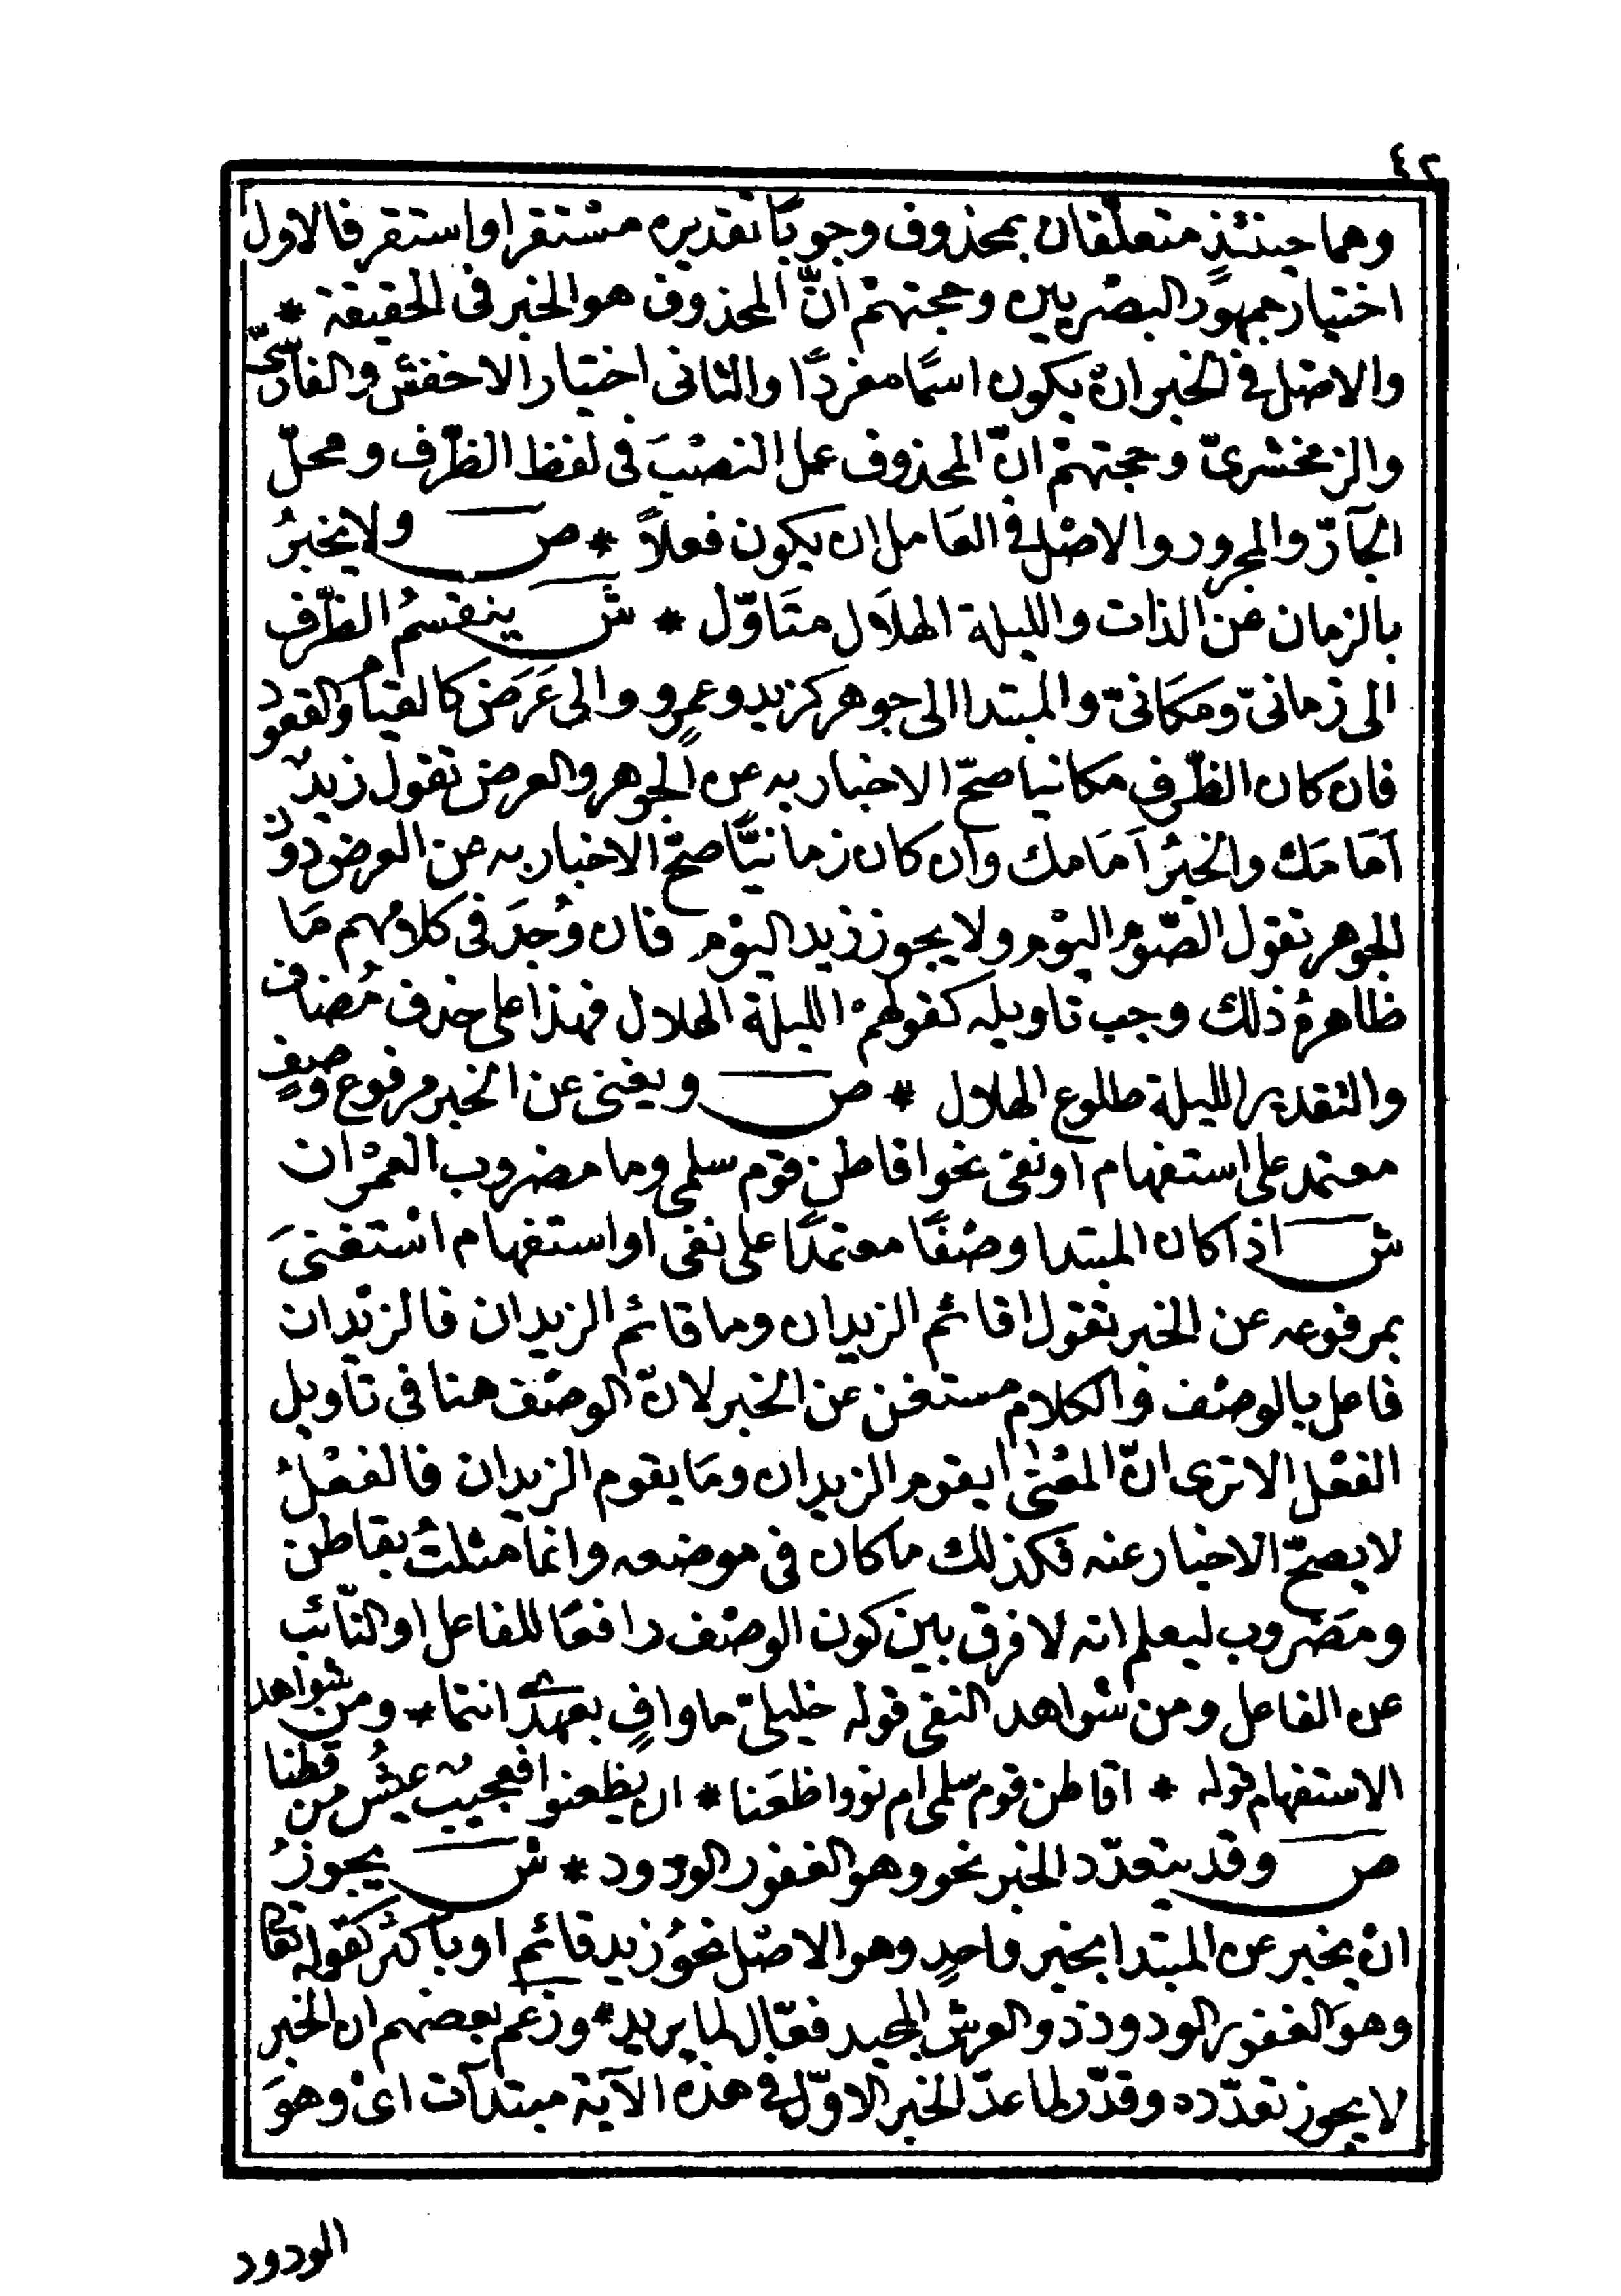 ٤٢
وهما حينئذٍ متعلّقان بمحذوف وجوبًا تقديره مستقر او استقر فالاول
اختيار جمهور البصريين وحجتهم انّ المحذوف هو الخبر فى الحقيقة *
والاصل فى الخبر ان يكون اسمًا مفردًا والثانى اختيار الاخفش والفارسىّ
والزمخشرىّ وحجتهم انّ المحذوف عمل النصْبَ فى لفظ الظّرف ومحلّ
الجآرّ والمجرور والاصْل فى العَامل ان يكون فعلاً * ص ولا يخبرُ
بالزمان عن الذات والليلة الهلَال متَاوّل * ش ينقسمُ الظّرف
الى زمانىّ ومَكَانىّ والمبتدا الى جوهر كزيد وعمرٍو والى عَرَض كالقيام والقعود
فان كان الظّرف مكانيا صحّ الاخبار به عن الجوهر والعرض تقول زيدٌ
اَمَامَك والخيرُ اَمَامك وان كان زمانيًّا صحّ الاخبار به عن العرض دون
الجوهر تقول الصّوم اليوْم ولا يجوز زيد اليوْم فان وُجدَ فى كلامهم مَا
ظاهرهُ ذلك وجب تاويله كقولهمْ الليلة الهلال فهذا على حذف مُضاف
والتقدير الليلة طلوع الهلال * ص ويغنى عن الخبر مرفوع وصفٍ
معتمد على استفهام او نفى نحو اقاطن قوم سلمى وما مضروب العمْران
ش اذا كان المبتدا وصْفًا معتمدًا على نفى او استفهام اسْتغنىَ
بمرفوعه عن الخبر تقول اقائم الزيدان وما قائم الزيدان فالزيْدان
فاعل بالوصْف والكلام مستغن عن الخبر لانّ الوصْف هنا فى تاويل
الفعْل الا ترى انّ المعْنى ايقوم الزيدان ومَا يقوم الزيدان فالفعْلُ
لا يصحّ الاخبار عنه فكذلك ما كان فى موضعه وانما مثلتُ بقاطن
ومضروب ليعلم انه لا فرق بين كون الوصْف رافعًا للفاعل او النّائب
عن الفاعل ومن شواهد النفى قوله خليلىّ ما وافٍ بعهدى انتما * ومن شواهد
الاستفهام قوله * اقاطن قوم سلمى ام نووا ظعَنا * ان يظعنوا فعجيبٌ عيشُ من قطنا
ص وقد يتعدّد الخبر نحو وهو الغفور الودود * ش يجوزُ
انْ يخبر عن المبتدا بخبر واحدٍ وهو الاصْل نحوُ زيد قائم او باكثر كقوله تعالى
وهوَ الغفور الودود ذو العرش المجيد فعّال لما يريد * وزعم بعضهم ان الخبر
لا يجوز تعدّده وقدّر لما عدّ الخبر الاوّل فى هذه الآية مبتدآت اىْ وهوَ
الودود